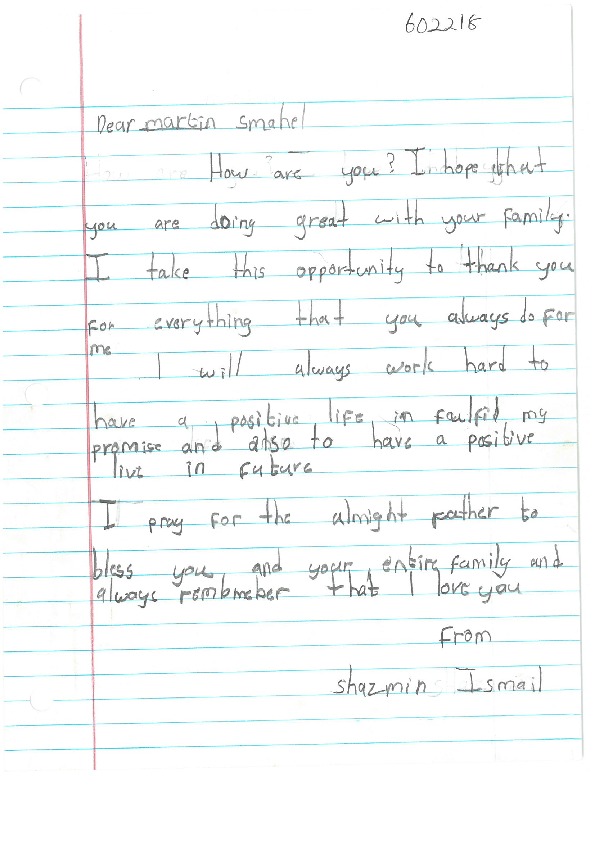 602218
Dear martin smahel
How are you? I hope that
you are doing great with your family.
I take this opportunity to thank you
for everything that you always do for
me
I will always work hard to
have a positive life in faulfid my
promise and also to have a positive
live in future
I pray for the almight father to
bless you and your entire family and
always rembmeber that I love you
from
shazmin Ismail